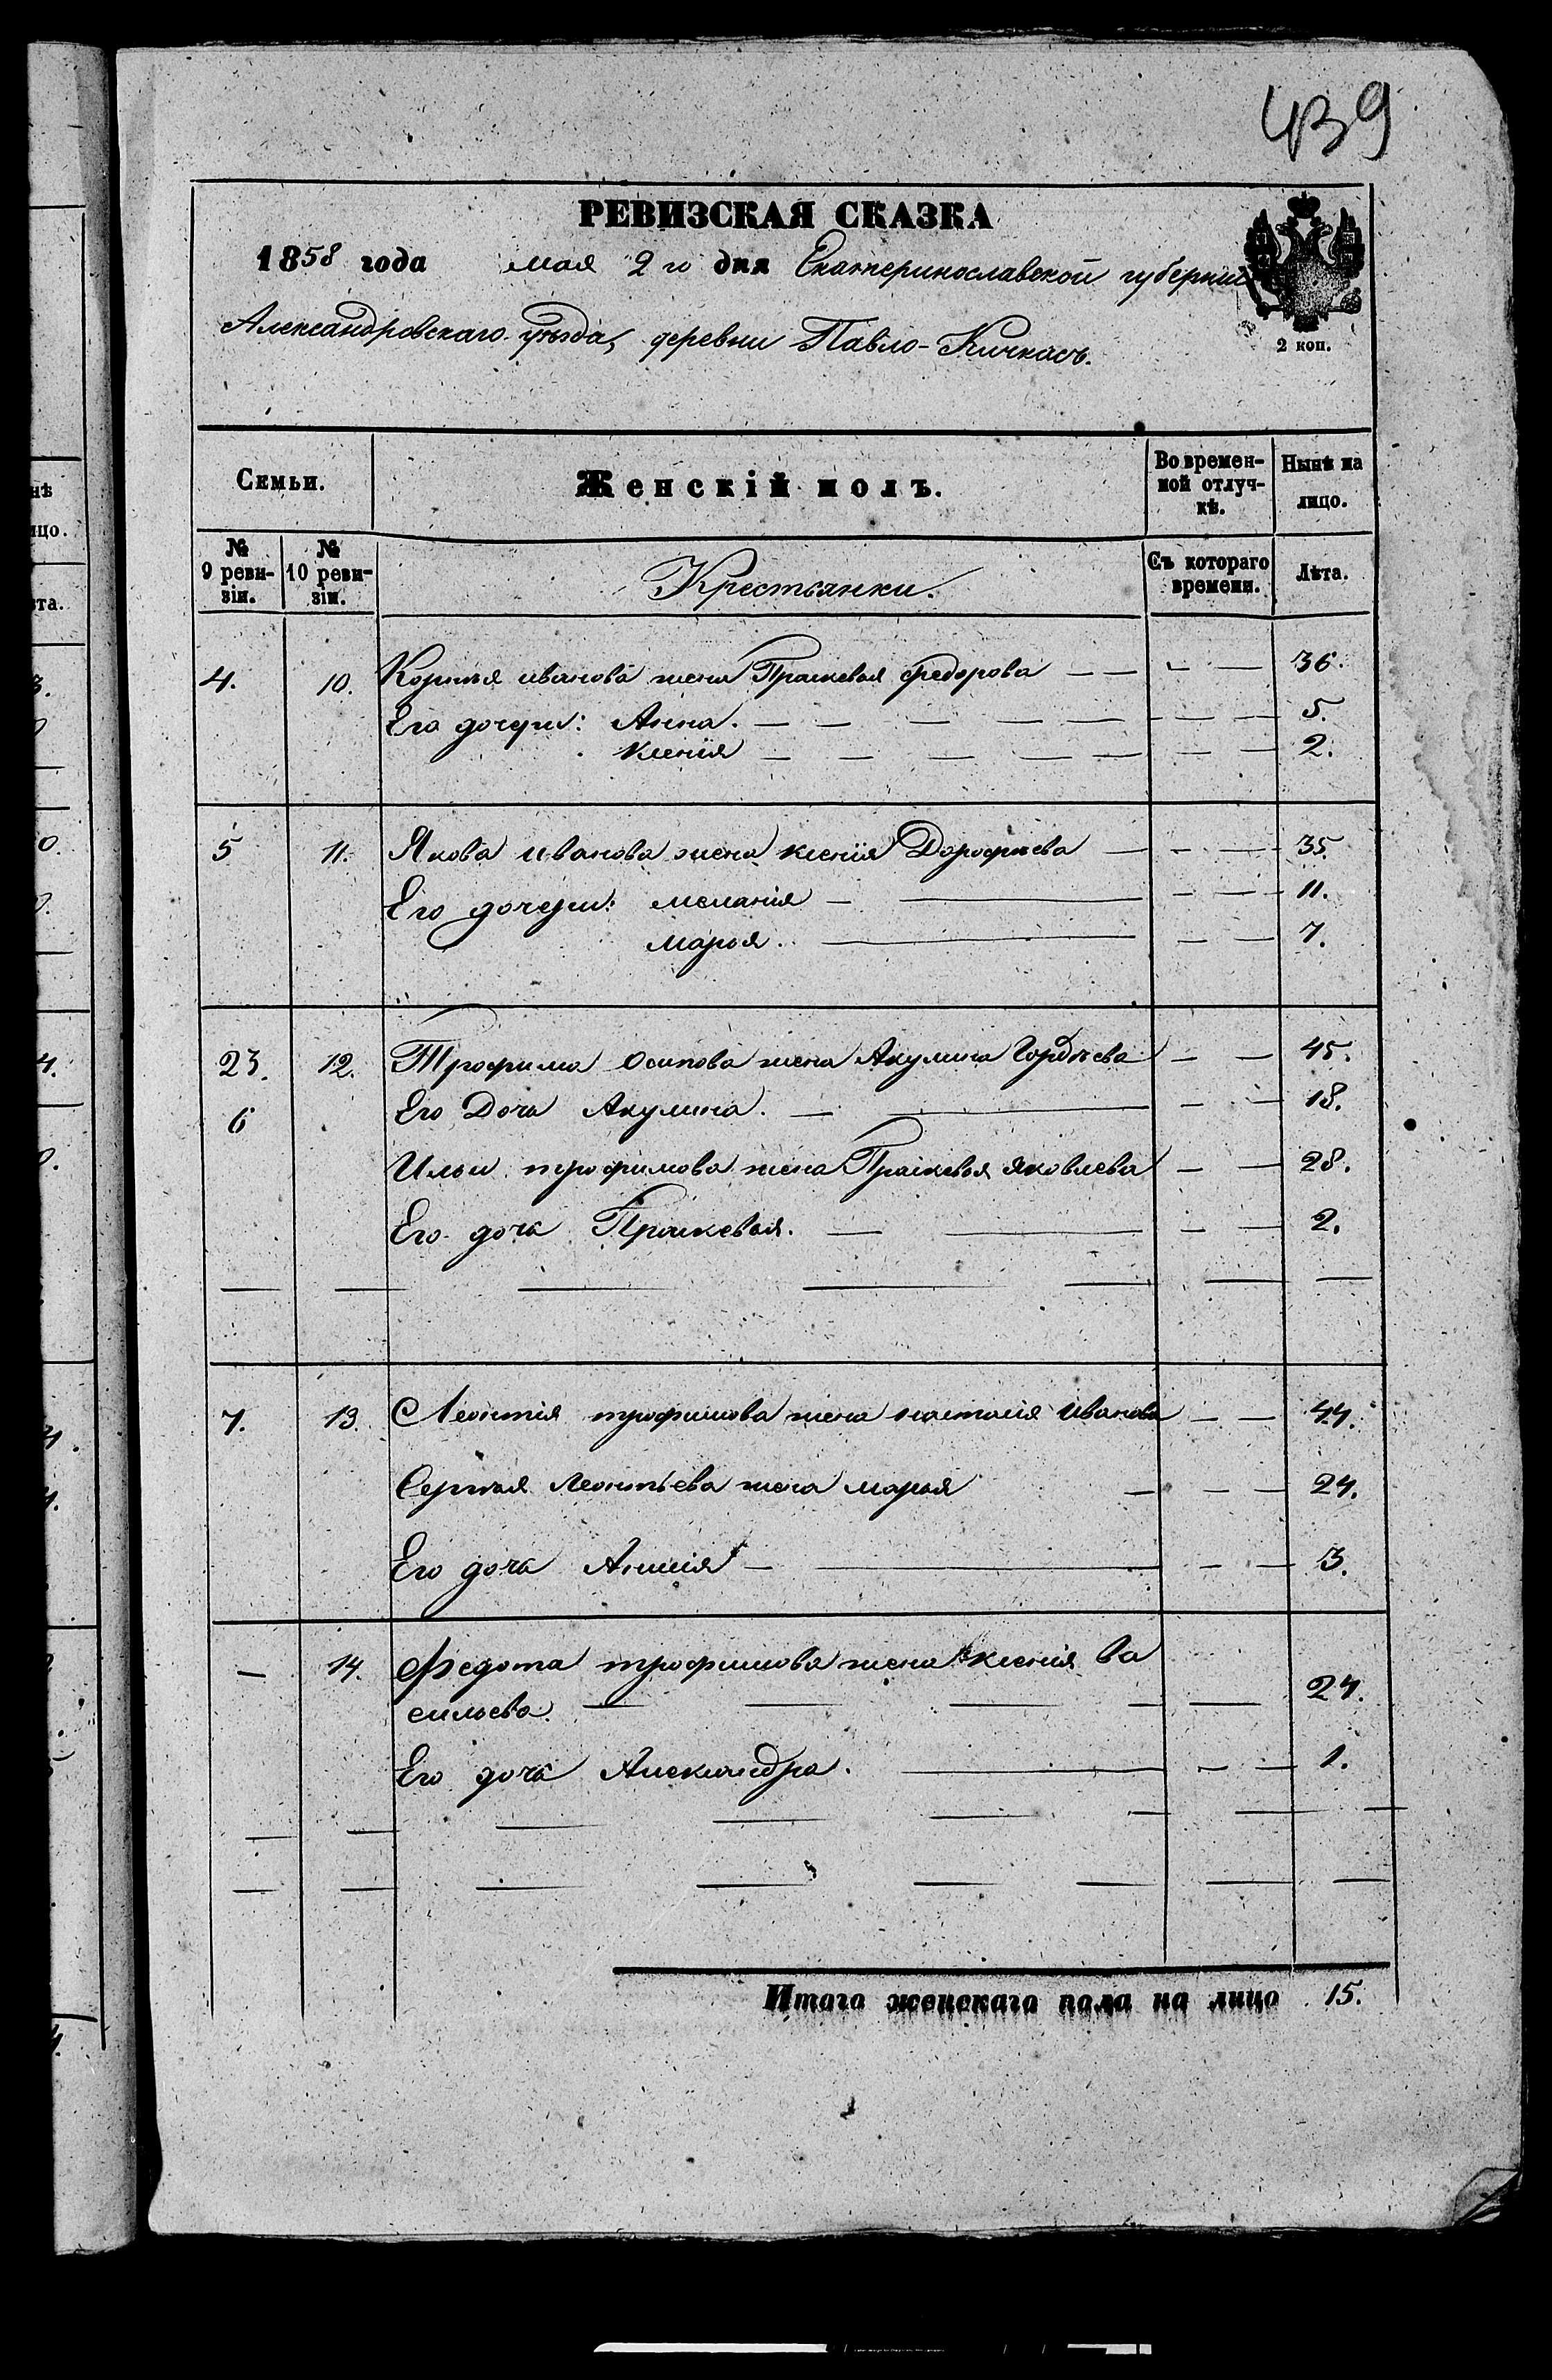 439
РЕВИЗСКАЯ СКАЗКА
1858 года мая 2 го дня Екатеринославской губернии
Александровскаго уѣзда, деревни Павло-Кичкасъ.
2 коп.
Семьи. Женскій полъ. Во времен-ной отлуч-кѣ. Нынѣ на лицо.
№ 9 реви-зіи. № 10 реви-зіи. Крестьянки. Съ котораго времени. Лѣта.
4. 10. Корнѣя иванова жена Прасковья федорова — — — — 36.
Его дочери: Анна. — — — — — — — 5.
Ксенія — — — — — — — 2.
5 11. Якова иванова жена ксенія Дорофѣева — — — 35.
Его дочери: меланія — — — — 11.
марья. — — — 7.
23. 12. Трофима Осипова жена Акулина Гордѣева — — 45.
6 Его Доча Акулина. — — — — 18.
Ильи трофимова жена Прасковья яковлева — — 28.
Его доча Прасковья. — — — — 2.
7. 13. Леонтія трофимова жена настасія Иванова — — 44.
Сергѣя Леонтьева жена марья — — — 24.
Его доча — — — — 3.
— 14. Федота трофимова жена ксенія Ва
сильева. — — — — — 24.
Его доча Александра. — — — 1.
Итого женскаго пола на лицо 15.